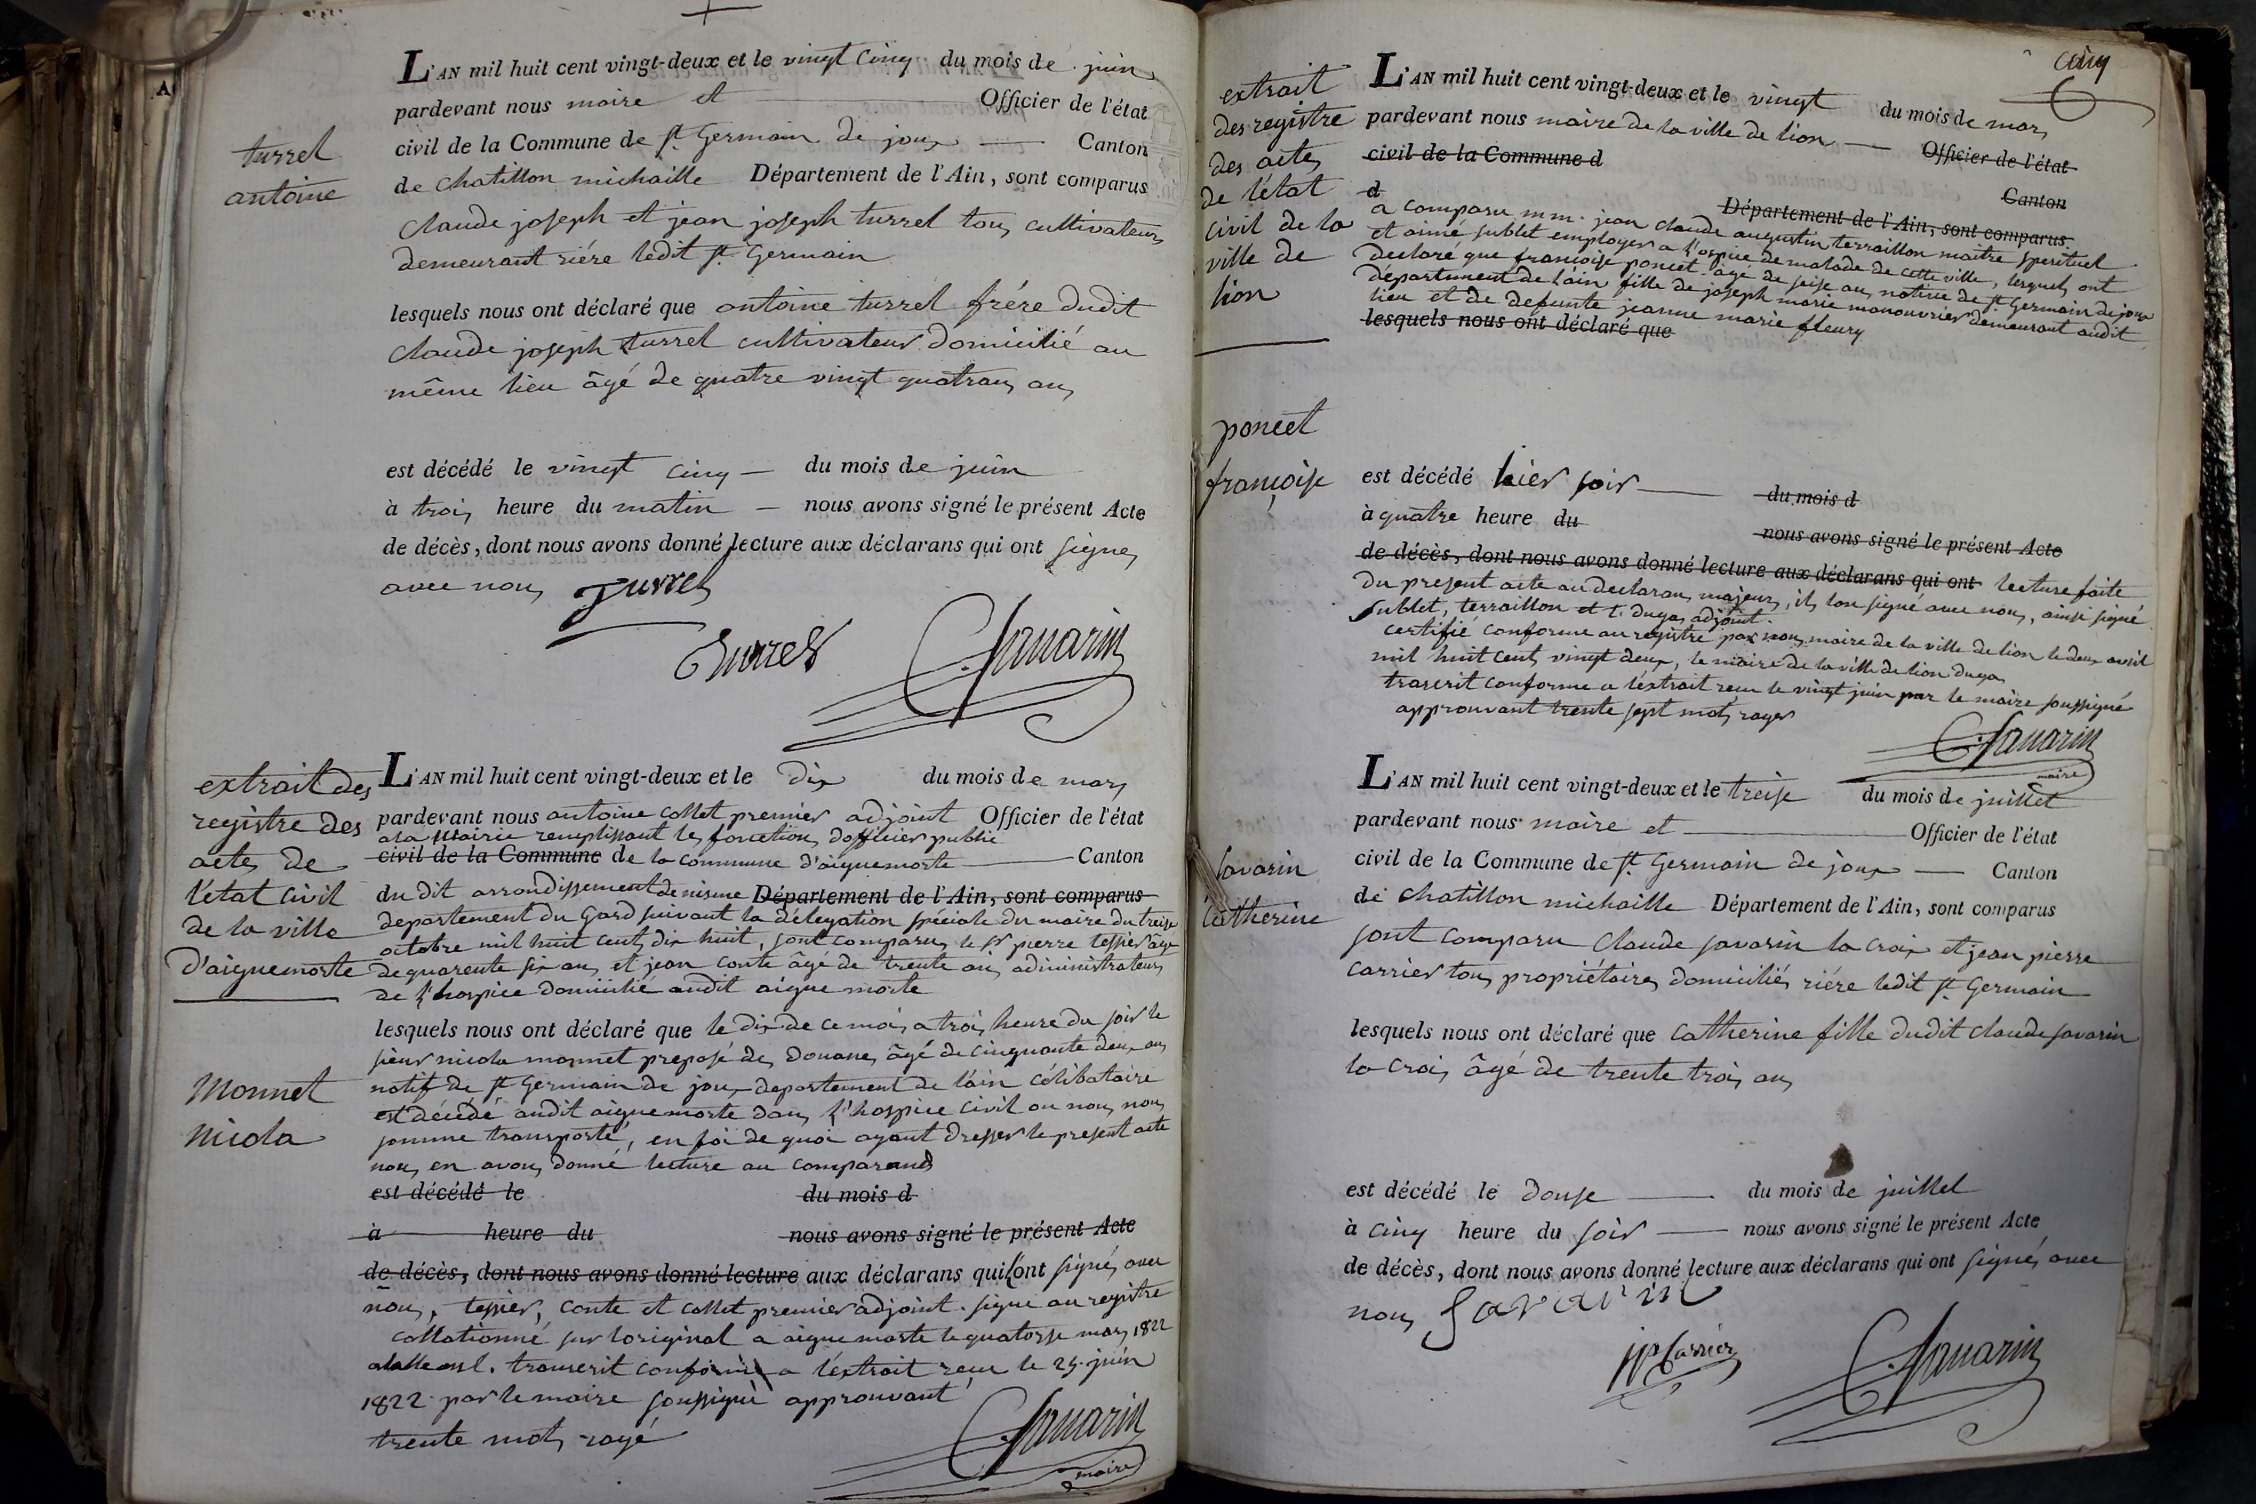 A
turrel
antoine
L'AN mil huit cent vingt-deux et le vingt cinq du mois de juin
pardevant nous maire et Officier de l'état
civil de la Commune de St Germain de joux Canton
de Chatillon michaille Département de l'Ain, sont comparus
Claude joseph et jean joseph turrel tous cultivateurs
demeurant riére ledit St Germain
lesquels nous ont déclaré que antoine turrel frére dudit
Claude joseph turrel cultivateur domicilié au
même lieu âgé de quatre vingt quatrans ans
est décédé le vingt cinq du mois de juin
à trois heure du matin nous avons signé le présent Acte
de décès, dont nous avons donné lecture aux déclarans qui ont signes
avec nous turrel
turrel C. Savarin
extrait des
registre des
actes de
l'etat civil
de la ville
d'aiguemorte
Monnet
Nicola
L'AN mil huit cent vingt-deux et le dix du mois de mars
pardevant nous antoine collet premier adjoint Officier de l'état
a la Mairie remplissant les fonction d'officier public
civil de la Commune de la commune d'aiguemorte Canton
du dit arrondissement de nisme Département de l'Ain, sont comparus
departement du Gard suivant la délegation spéciale du maire du treise
octobre mil huit cent dix huit, sont comparus le sr pierre tessier âge
de quarente six ans et jean conte âgé de trente ans administrateurs
de l'hospice domicilié audit aigue morte
lesquels nous ont déclaré que le dix de ce mois a trois heure du soir le
sieur nicola monnet preposé des douanes âgé de cinquante deux ans
natif de St Germain de joux departement de l'ain célibataire
est décédé audit aiguemorte dans l'hospice civil ou nous nous
somme transporté, en foi de quoi ayant dresser le present acte
nous en avons donné lecture au comparand
est décédé le du mois d
à heure du nous avons signé le présent Acte
de décès, dont nous avons donné lecture aux déclarans qui l'ont signés avec
nous, tessier, conte et collet premier adjoint. signe au registre
collationné sur l'original a aigue morte le quatorse mars 1822
transcrit conforme a l'éxtrait reçu le 25 juin
1822 par le maire soussigné approuvant
trente mots rayé
C. Savarin
maire
cinq
extrait
des registre
des actes
de l'état
civil de la
ville de
lion
poncet
françoise
L'AN mil huit cent vingt-deux et le vingt du mois de mars
pardevant nous maire de la ville de lion Officier de l'état
civil de la Commune d Canton
d Département de l'Ain, sont comparus
a comparu mm. jean claude augustin terraillon maitre sperituel
et aimé sublet employer a l'ospice de malade de cette ville, lesquels ont
declaré que françoise poncet âge de seise ans native de St Germain de joux
departement de l'ain fille de joseph marie manouvrier demeurant audit
lieu et de defunte jeanne marie fleury
lesquels nous ont déclaré que
est décédé hier soir du mois d
à quatre heure du nous avons signé le présent Acte
de décès, dont nous avons donné lecture aux déclarans qui ont lecture faite
du present acte au declarans majeurs, ils l'on signé avec nous, ainsi signé
Sublet, terraillon et t. dugas adjoint.
certifié conforme au registre par nous maire de la ville de lion le deux avril
mil huit cent vingt deux, le maire de la ville de lion dugas
transcrit conforme a l'éxtrait reçu le vingt juin par le maire soussigné
approuvant trente sept mots rayes
C. Savarin
maire
Savarin
Catherine
L'AN mil huit cent vingt-deux et le treise du mois de juillet
pardevant nous maire et Officier de l'état
civil de la Commune de St Germain de joux Canton
de Chatillon michaille Département de l'Ain, sont comparus
sont comparu Claude savarin la croix et jean pierre
carrier tous propriétaires domiciliés riére ledit St Germain
lesquels nous ont déclaré que Catherine fille dudit claude savarin
la croix âgé de trente trois ans
est décédé le douse du mois de juillet
à cinq heure du soir nous avons signé le présent Acte
de décès, dont nous avons donné lecture aux déclarans qui ont signés avec
nous Savarin
jp Carrier C. Savarin